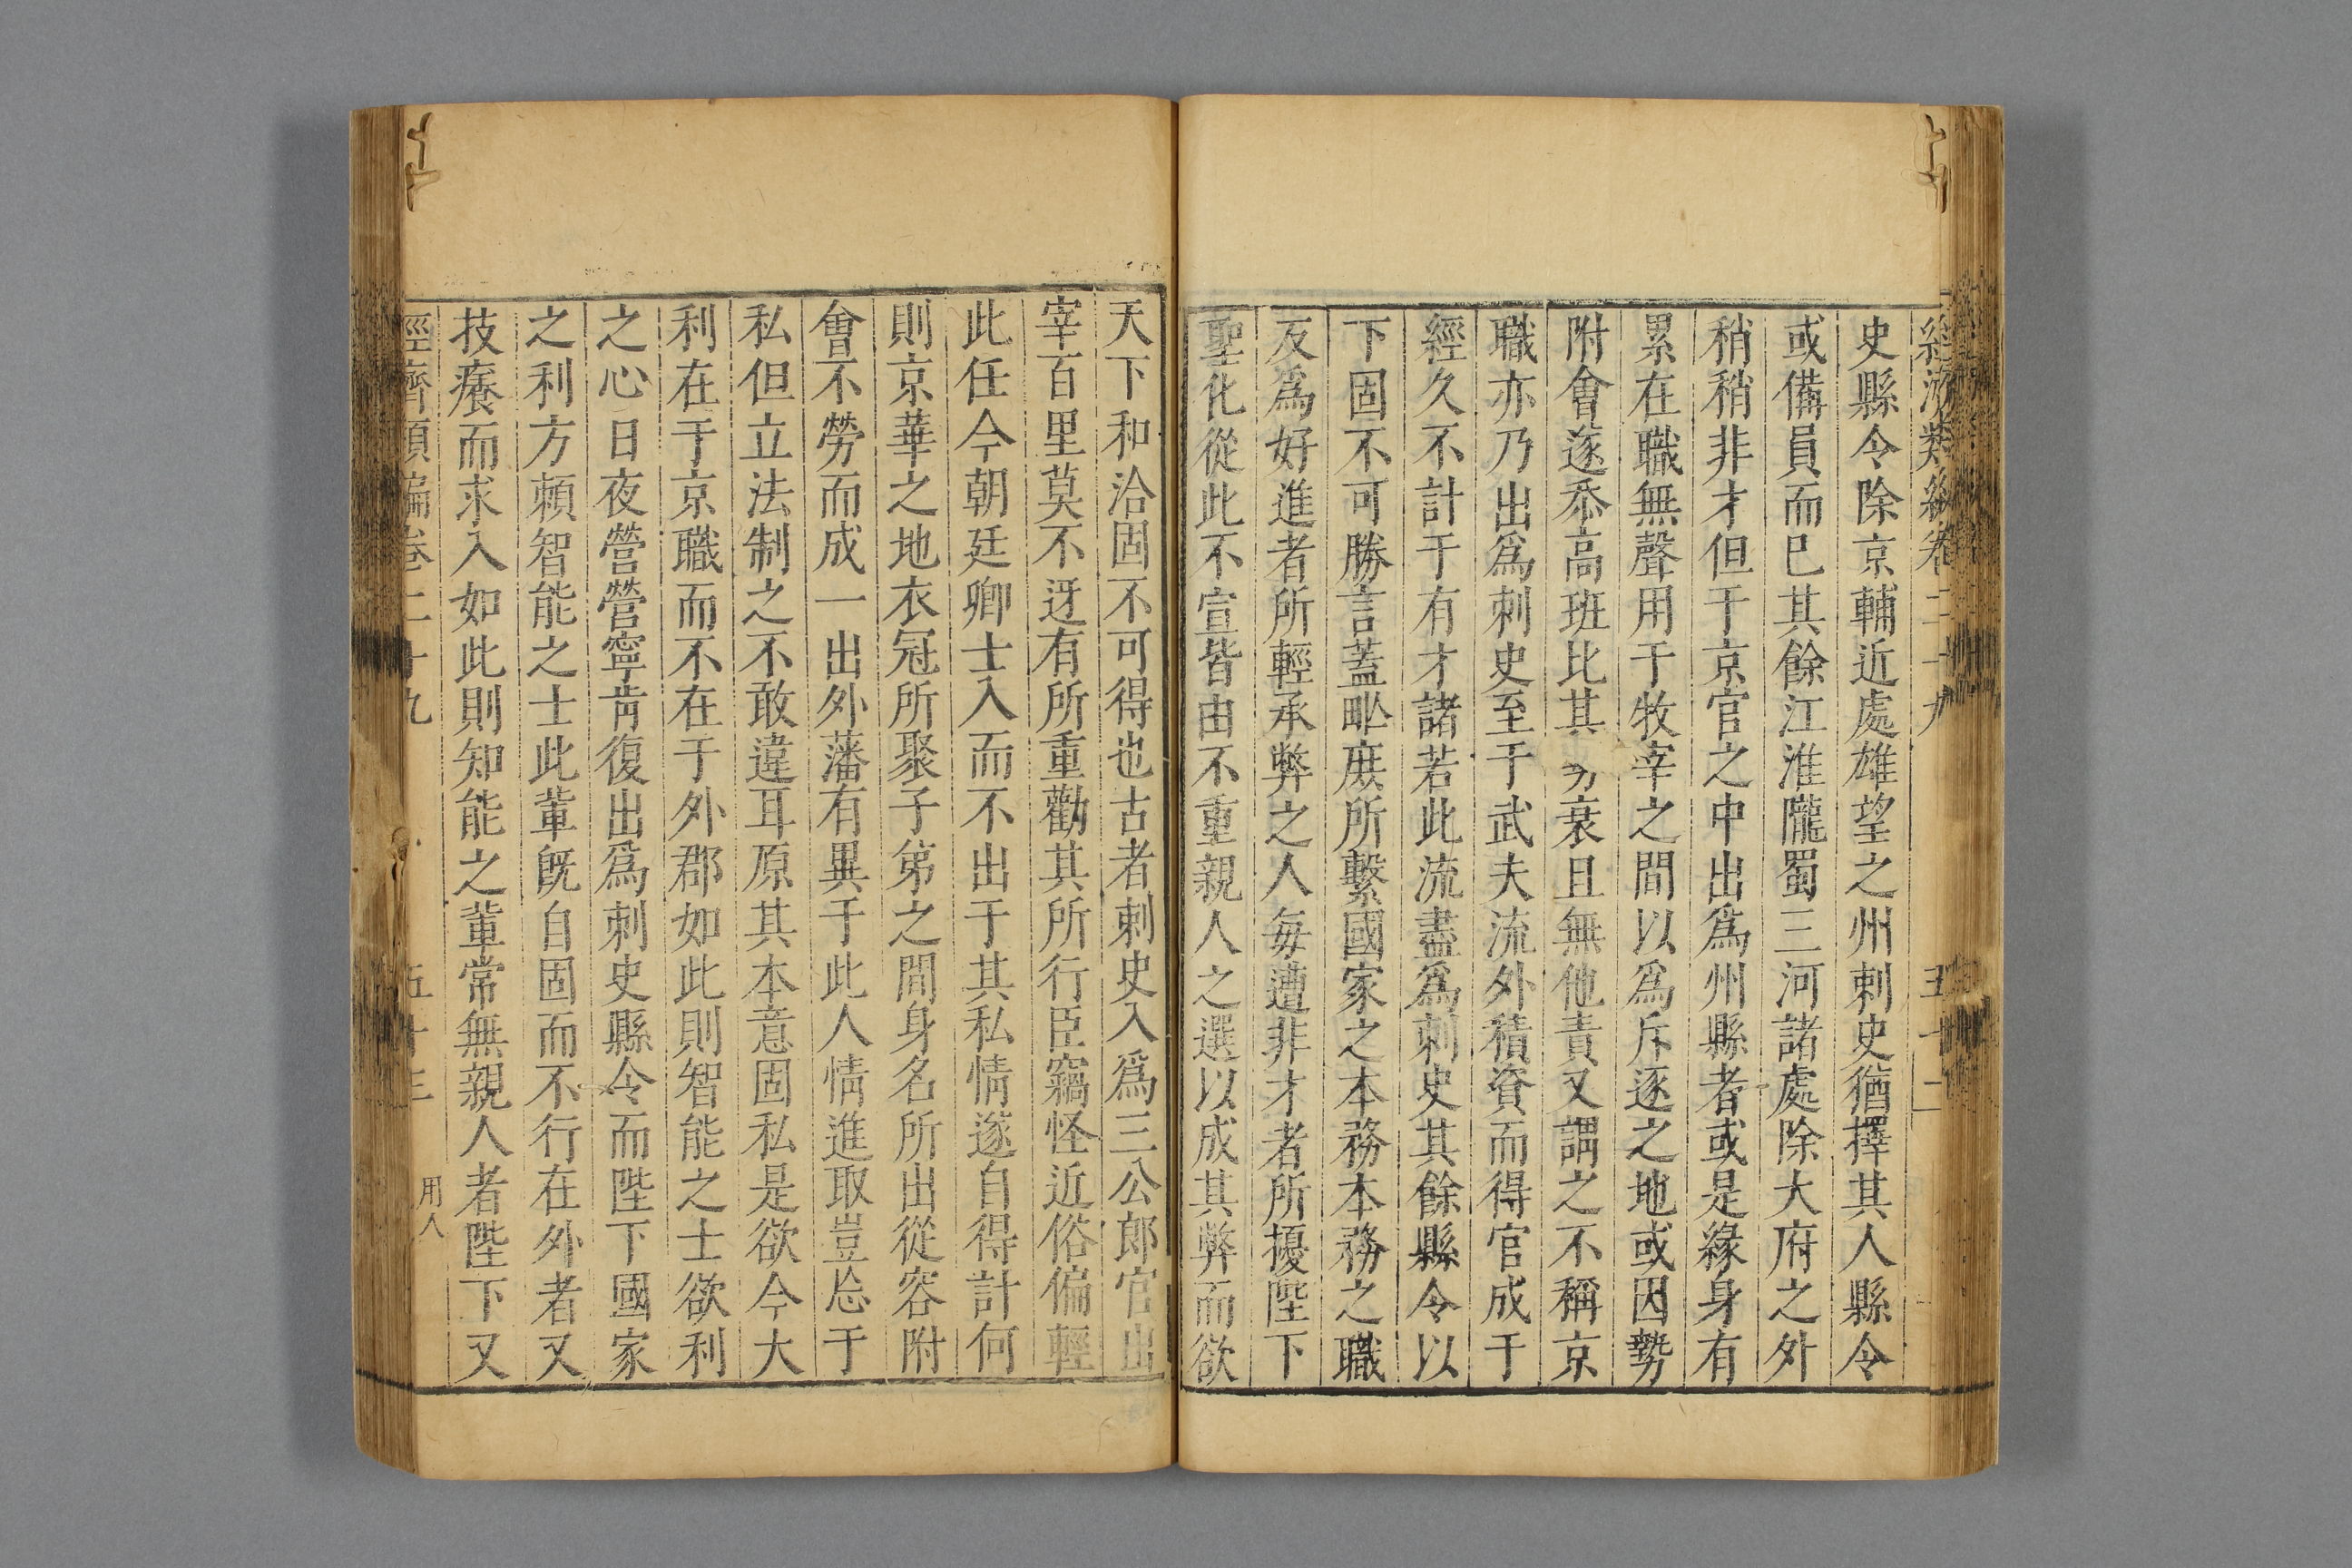 史縣令除京輔近處雄望之州刺史猶擇其人縣令
或備員而巳其餘江淮隴蜀三河諸處除大府之外
稍稍非才但于京官之中出爲州縣者或是緣身有
累在職無聲用于牧宰之間以爲斥逐之地或因勢
附會遂忝高班比其勢衰且無他責又謂之不稱京
職亦乃出爲刺史至于武夫流外積資而得官成于
經久不計于有才諸若此流盡爲刺史其餘縣令以
下固不可勝言蓋甿庶所繫國家之本務本務之職
反爲好進者所輕承弊之人每遭非才者所擾陛下
聖化從此不宣皆由不重親人之選以成其弊而欲
天下和洽固不可得也古者刺史入爲三公郎官出
宰百里莫不迓有所重勸其所行臣竊怪近俗偏輕
此任今朝廷卿士入而不出于其私情遂自得計何
則京華之地衣冠所聚子弟之間身名所出從容附
會不勞而成一出外藩有異于此人情進取豈忘于
私但立法制之不敢違耳原其本意固私是欲今大
利在于京職而不在于外郡如此則智能之士欲利
之心日夜營營寧肯復出爲刺史縣令而陛下國家
之利方賴智能之士此輩旣自固而不行在外者又
技癢而求入如此則知能之輩常無親人者陛下又
經濟類編卷二十九 五十三 用人